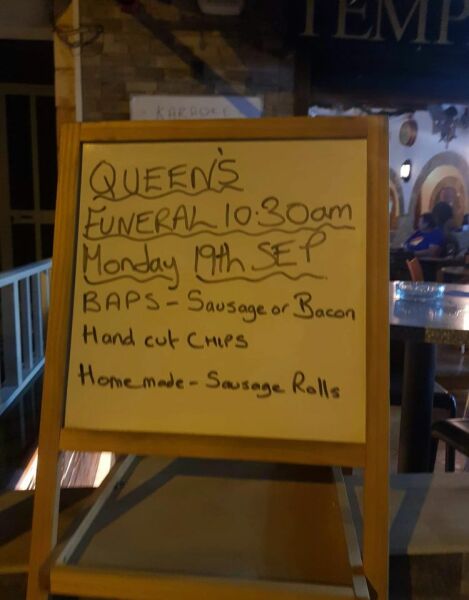 TEMP
KARAOKE
QUEEN'S
FUNERAL 10.30am
Monday 19th SEP
BAPS - Sausage or Bacon
Hand cut CHIPS
Homemade - Sausage Rolls